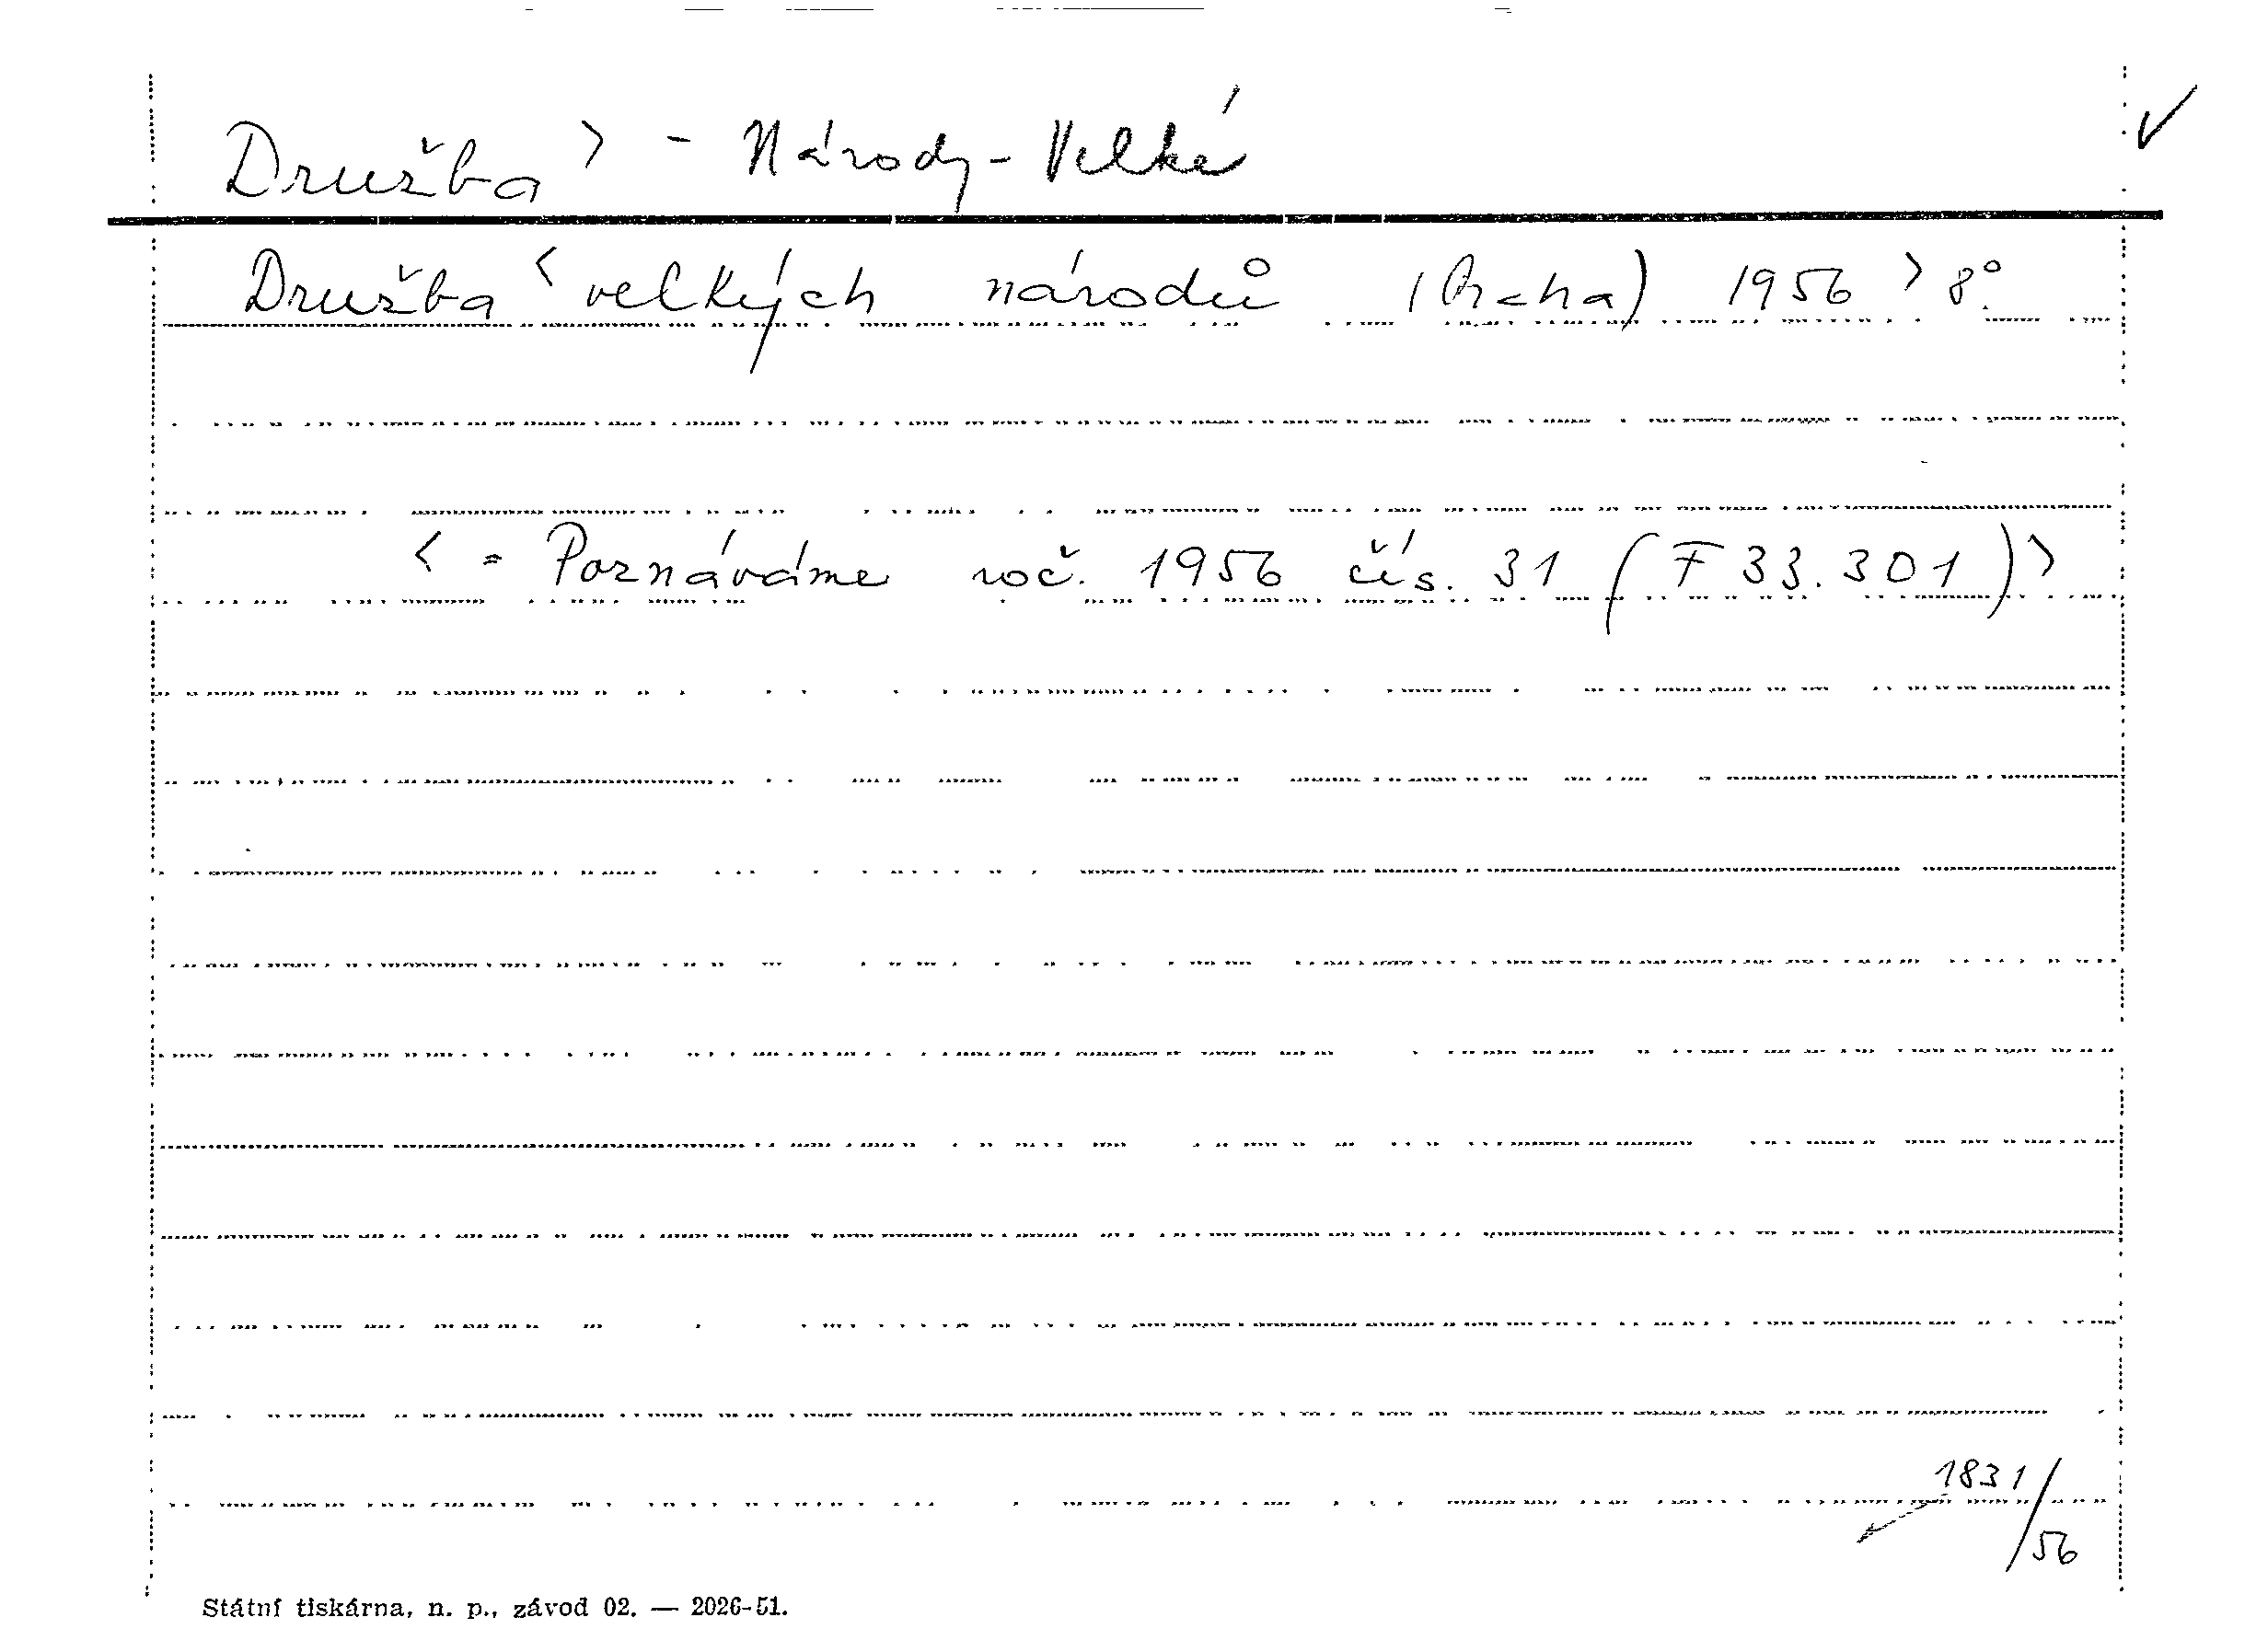 Družba > - Národy - Velké ✓
Družba < velkých národů (Praha) 1956 > 8°.
< = Poznáváme roč. 1956 čís. 31 (F 33.301) >
1831/56
Státní tiskárna, n. p., závod 02. — 2026-51.